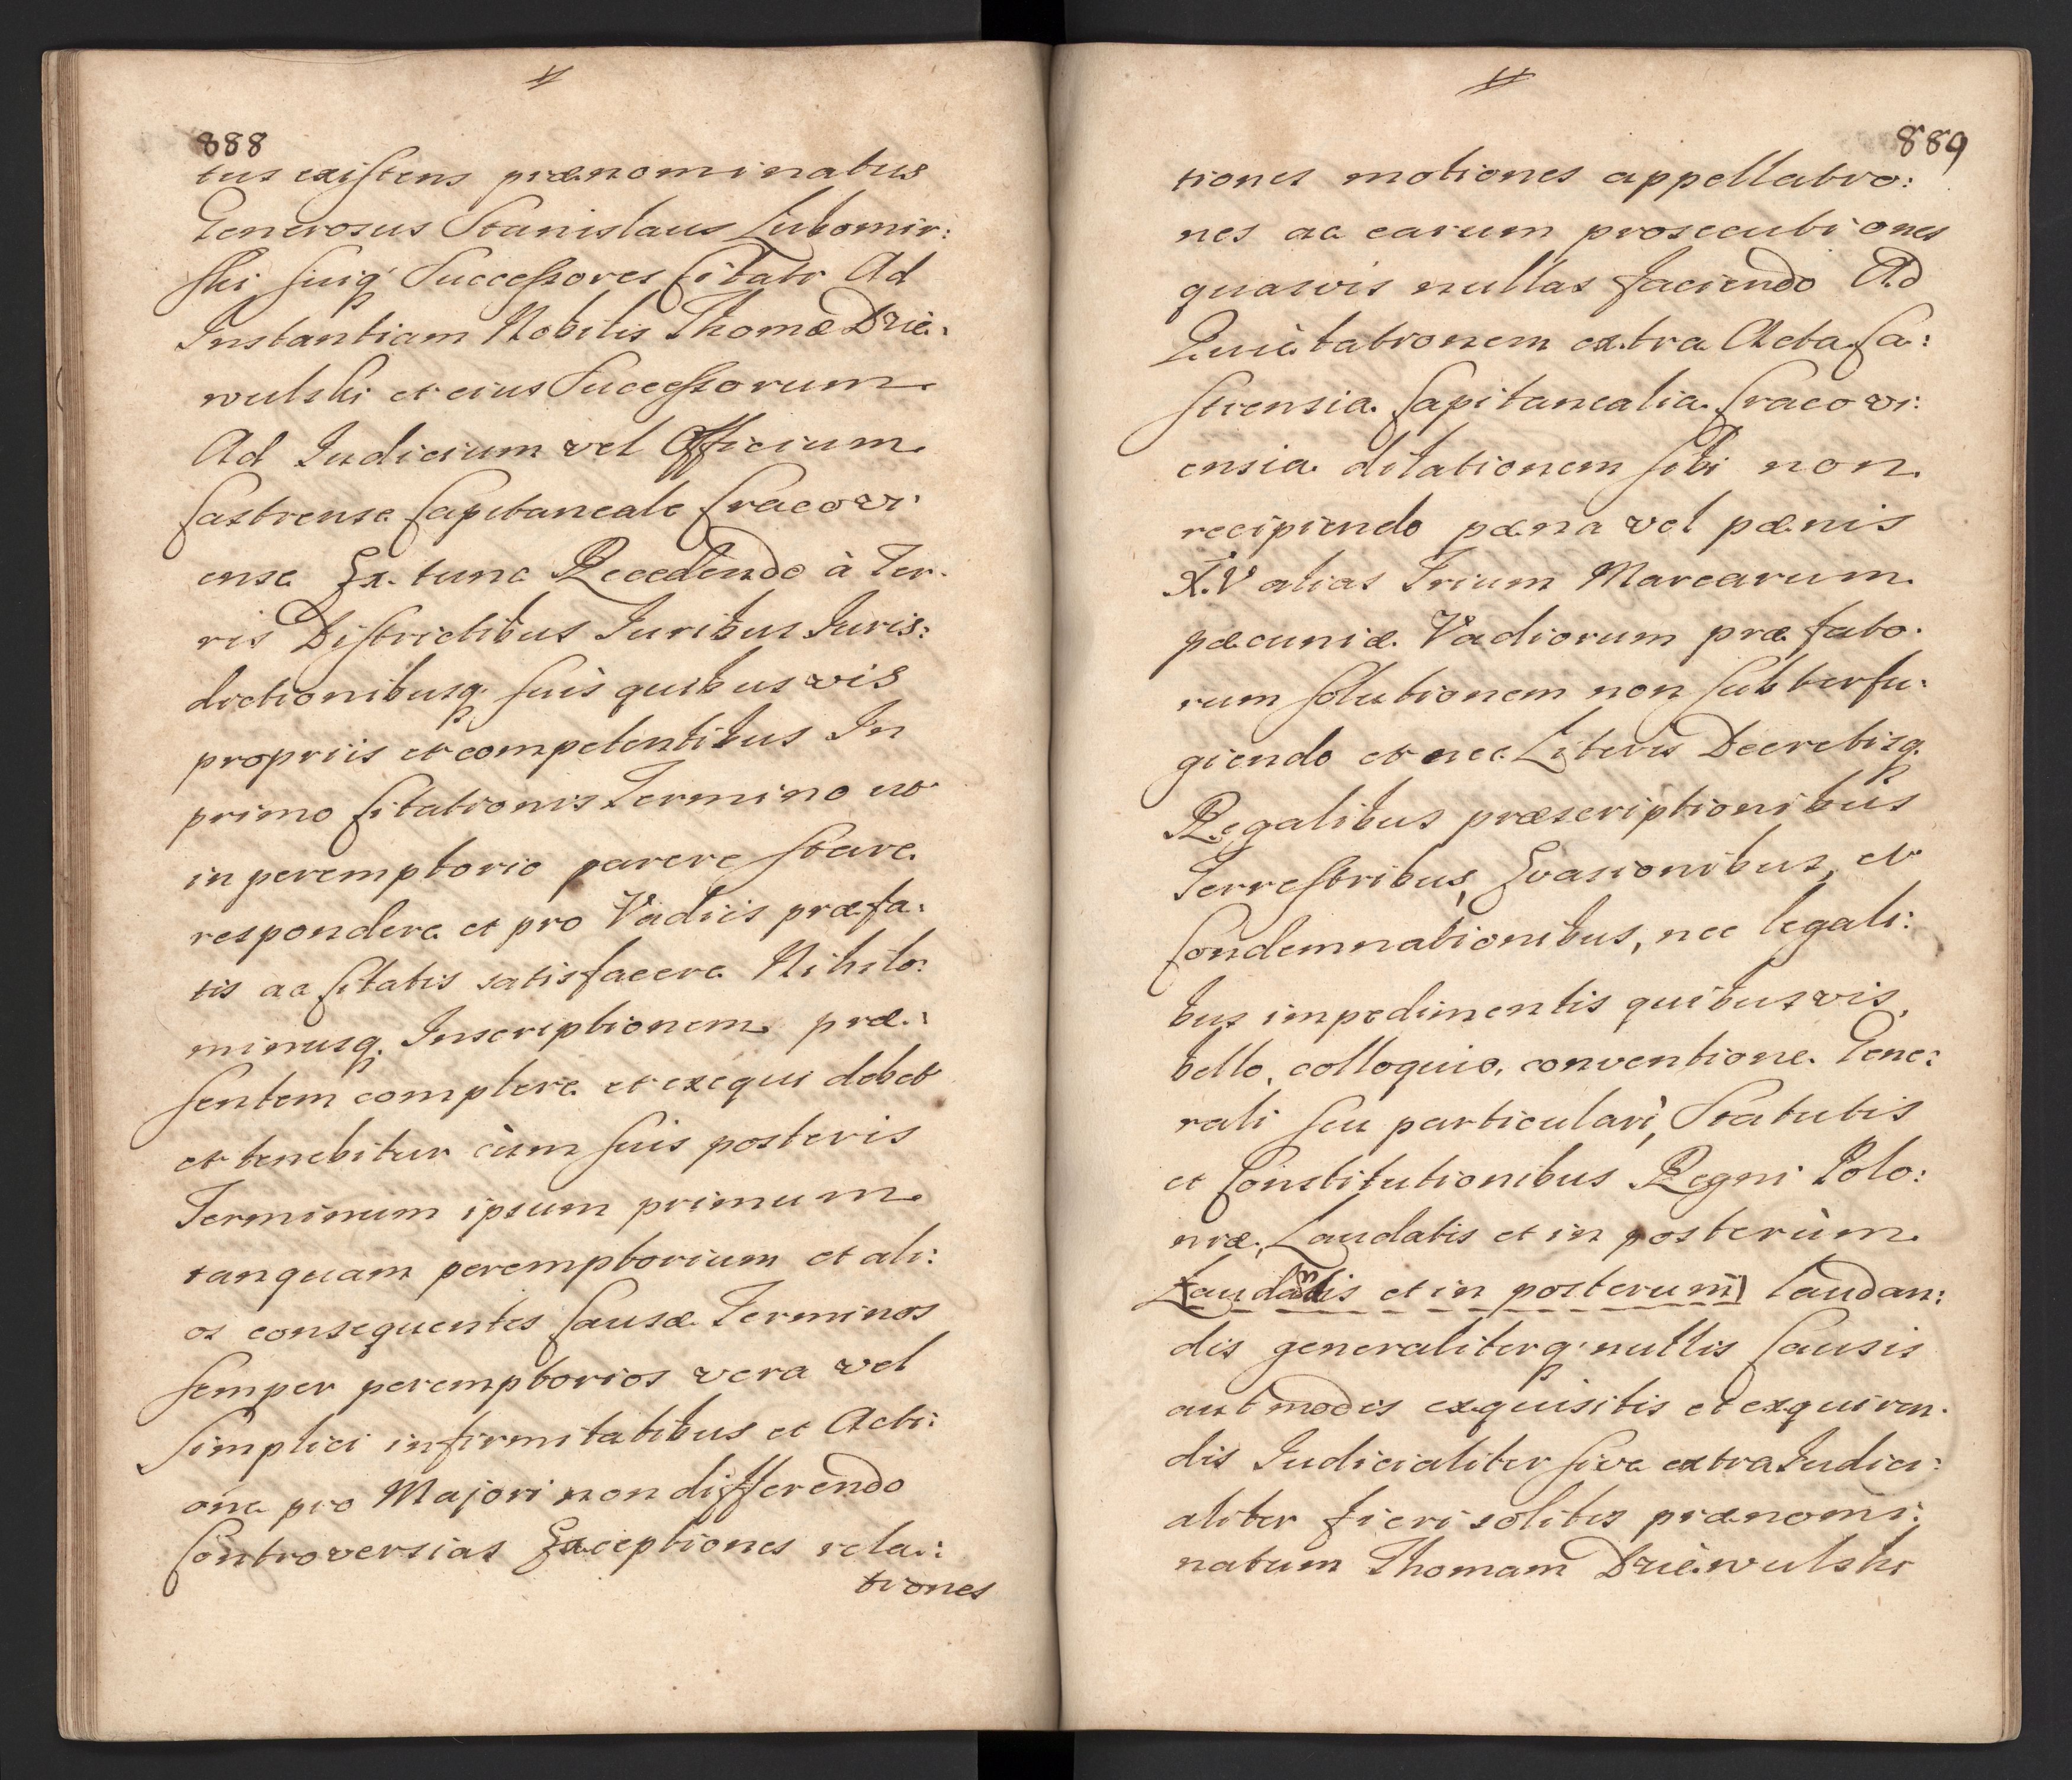 888
tus existens prænominatus
Generosus Stanislaus Lubomir:
ski suiq́ Successores Citati Ad
Instantiam Nobilis Thomæ Drie:
wulski et eius Successorum
Ad Iudicium vel Officium
Castrense Capitaneale Cracovi
ense Ex tunc Recedendo à Ter:
ris Districtibus Iuribus Iuris:
dictionibusq́ suis quibusvis
propriis et competentibus In
primo Citationis Termino ut
in peremptorio parere stare
respondere et pro Vadiis præfa:
tis ac Citatis satisfacere Nihilo:
minusq́ Inscriptionem præ:
sentem complere et exequi debet
et tenebitur cùm suis posteris
Terminum ipsum primum
tanquam peremptorium et ali:
os consequentes Causæ Terminos
semper peremptorios vera vel
simplici infirmitatibus et Acti:
one pro Majori non differendo
Controversias Exceptiones rela:
tiones
889
tiones motiones appellatio:
nes ac earum prosecutiones
quasvis nullas faciendo Ad
Quietationem extra Acta Ca:
strensia Capitanealia Cracovi:
ensia dilationem sibi non
recipiendo pæna vel pænis
X.V alias Trium Marcarum
pæcuniæ Vadiorum præfato:
rum solutionem non subterfu:
giendo et nec Literis Decretisq́
Regalibus præscriptionibus
Terrestribus, Evasionibus, et
Condemnationibus, nec legali:
bus impedimentis quibusvis,
bello, colloquio, conventione Gene:
rali seu particulari, Statutis
et Constitutionibus Regni Polo:
niæ, Laudatis et in posterùm
Laudandis et in posterum laudan:
dis generaliterq́ nullis Causis
aut modis exquisitis et exquiren:
dis Iudicialiter sive extraIudici:
aliter fieri solitis prænomi:
natum Thomam Driewulski